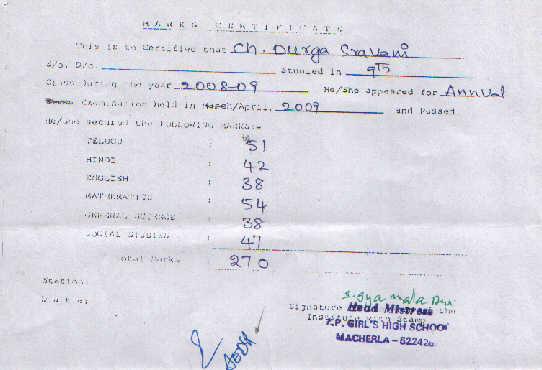 MARKS CERTIFICATE
This is to Certified that Ch. Durga Sravani
S/o. D/o. Studied in 9th
Class during the year 2008-09 He/She appeared for Annual
Examination held in March/April, 2009 and Passed
He/She secured the FOLLOWING MARKS:-
TELUGU : 51
HINDI : 42
ENGLISH : 38
MATHEMATICS : 54
GENERAL SCIENCE : 38
SOCIAL STUDIES : 47
Total Marks 270
Station:
Date:
Signature of the
Head Mistress
Institute with Stamp
Z.P. GIRL'S HIGH SCHOOL
MACHERLA - 522426